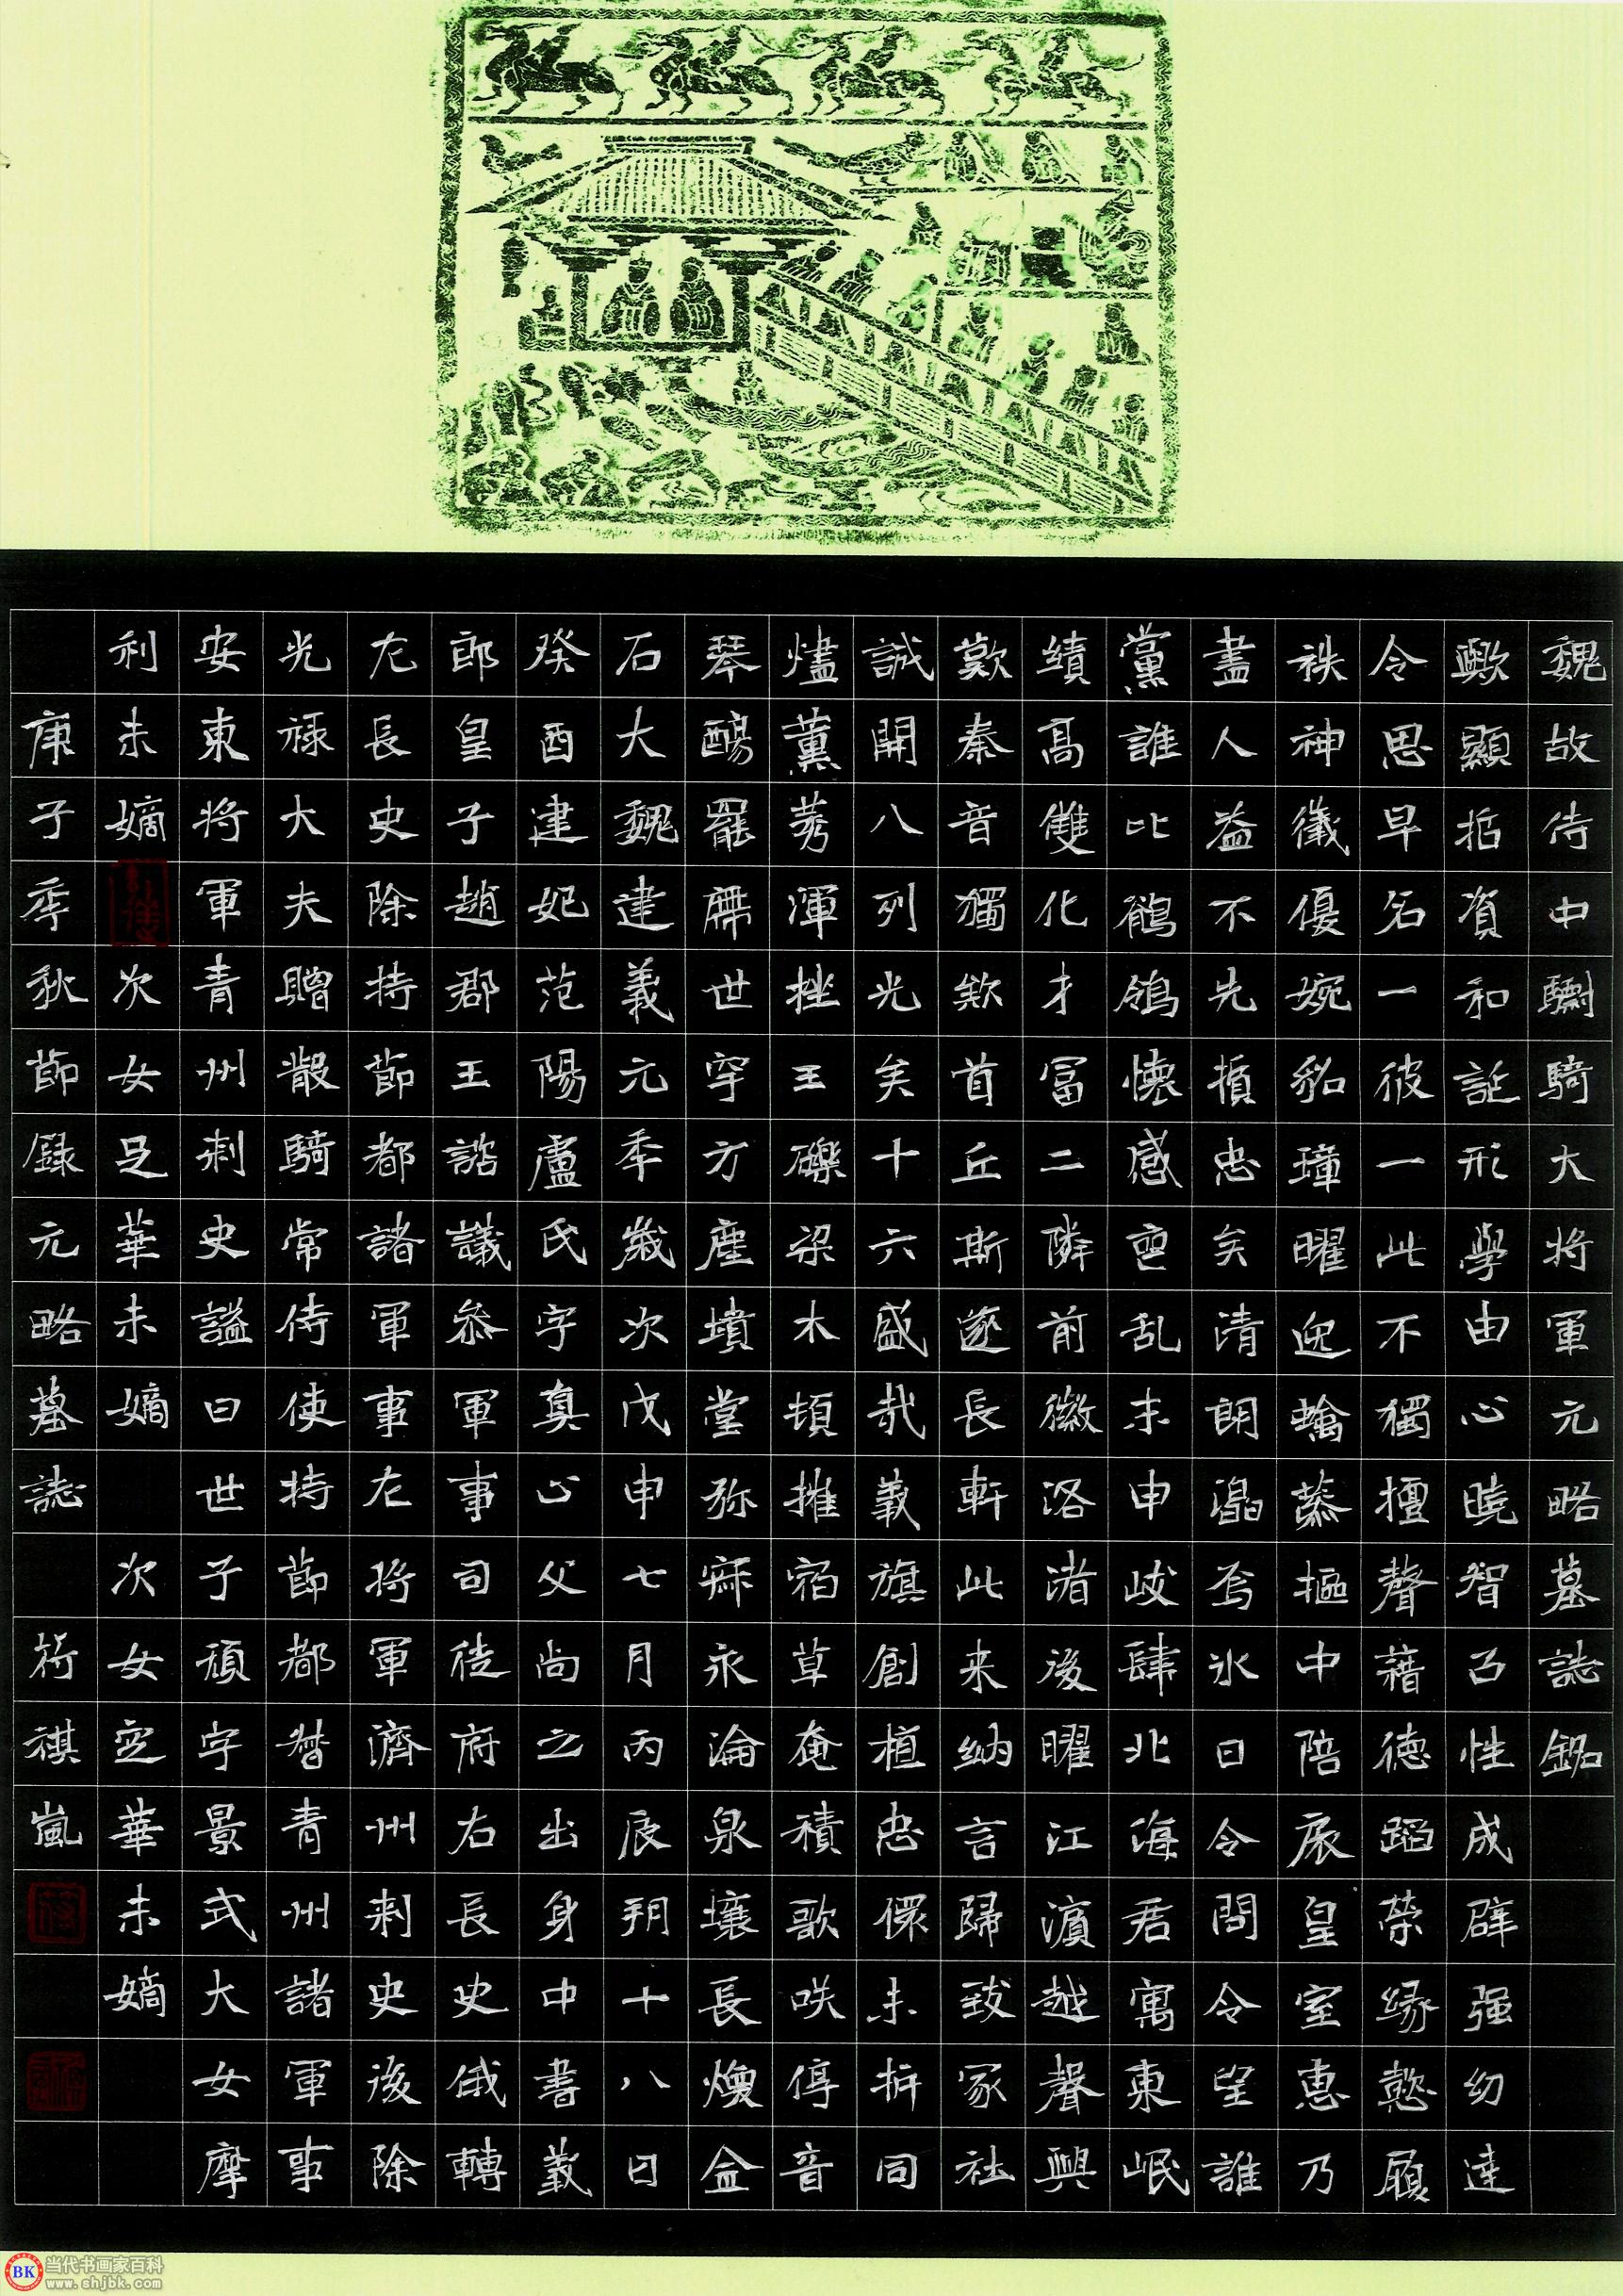 魏故侍中驃騎大將軍元略墓誌銘
歟顯哲資和誕形學由心曉智㠯性成辟强幼達
令思早名一彼一此不獨擅聲藉德蹈榮緣懿履
袟神儀優婉貂璋曜迎蟬藻摳中陪扆皇室惠乃
盡人益不先損忠矣清朗焉冰日令問令望誰
黨誰比鶺鴒懷感亶乱未申岐肆北海君寓東岷
績高雙化才冨二隣前徽洛渚後曜江濱越聲興
歎秦音獨欸首丘斯遂長軒此来納言歸致冢社
誠開八列光矣十六盛哉義旗創植忠儇未折同
燼薰莠渾挫王礫梁木頓摧宿草奄積歌咲停音
琴觴罷廗世穸方塵墳堂弥寂永淪泉壤長燠金
石大魏建義元季歲次戊申七月丙辰朔十八日
癸酉建妃范陽盧氏字真心父尚之出身中書議
郎皇子趙郡王諮議參軍事司徒府右長史俄轉
左長史除持節都諸軍事左将軍濟州刺史後除
光禄大夫贈散騎常侍使持節都督青州諸軍事
安東将軍青州刺史謚曰世子頊字景式大女摩
利未嫡 次女足華未嫡 次女定華未嫡
庚子季秋節録元略墓誌 蒋祺嵐
BK 当代书画家百科
www.shjbk.com